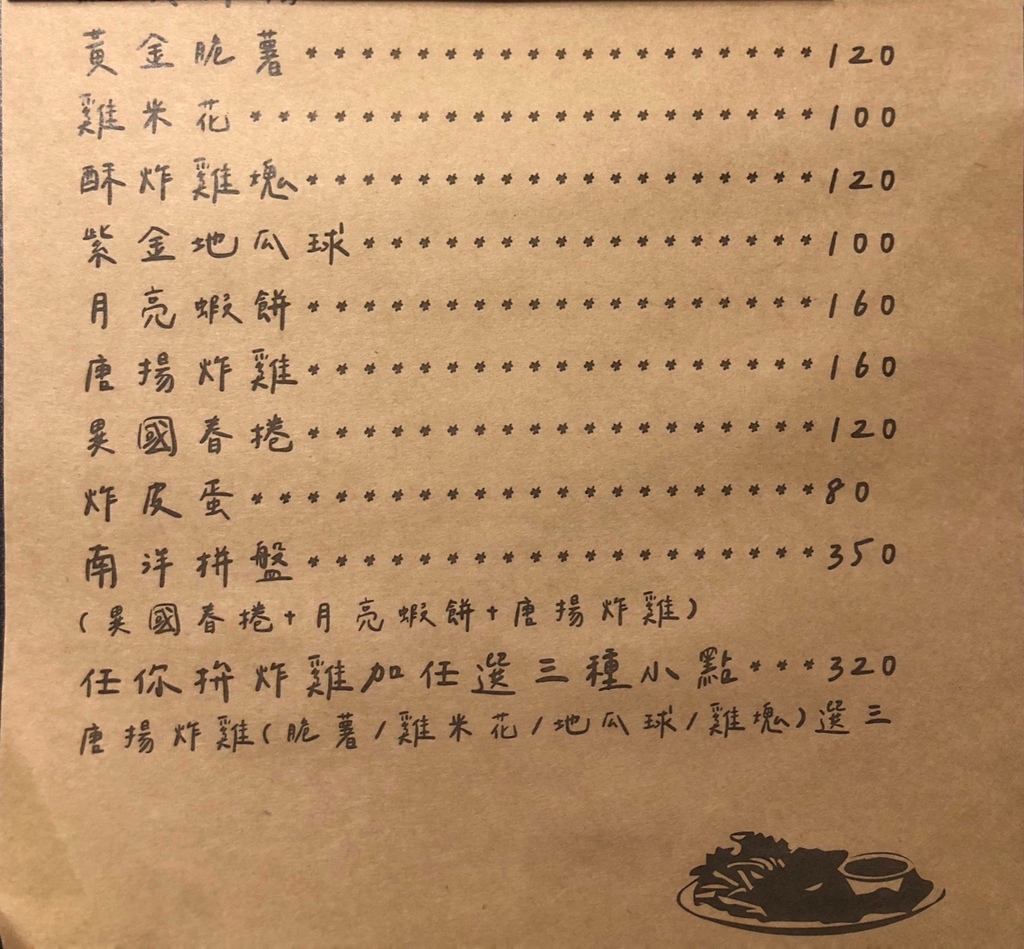 黃金脆薯******************* 120
雞米花********************* 100
酥炸雞塊******************* 120
紫金地瓜球***************** 100
月亮蝦餅******************* 160
唐揚炸雞******************* 160
異國春捲******************* 120
炸皮蛋********************* 80
南洋拼盤******************* 350
(異國春捲+月亮蝦餅+唐揚炸雞)
任你拼炸雞加任選三種小點*** 320
唐揚炸雞(脆薯/雞米花/地瓜球/雞塊)選三